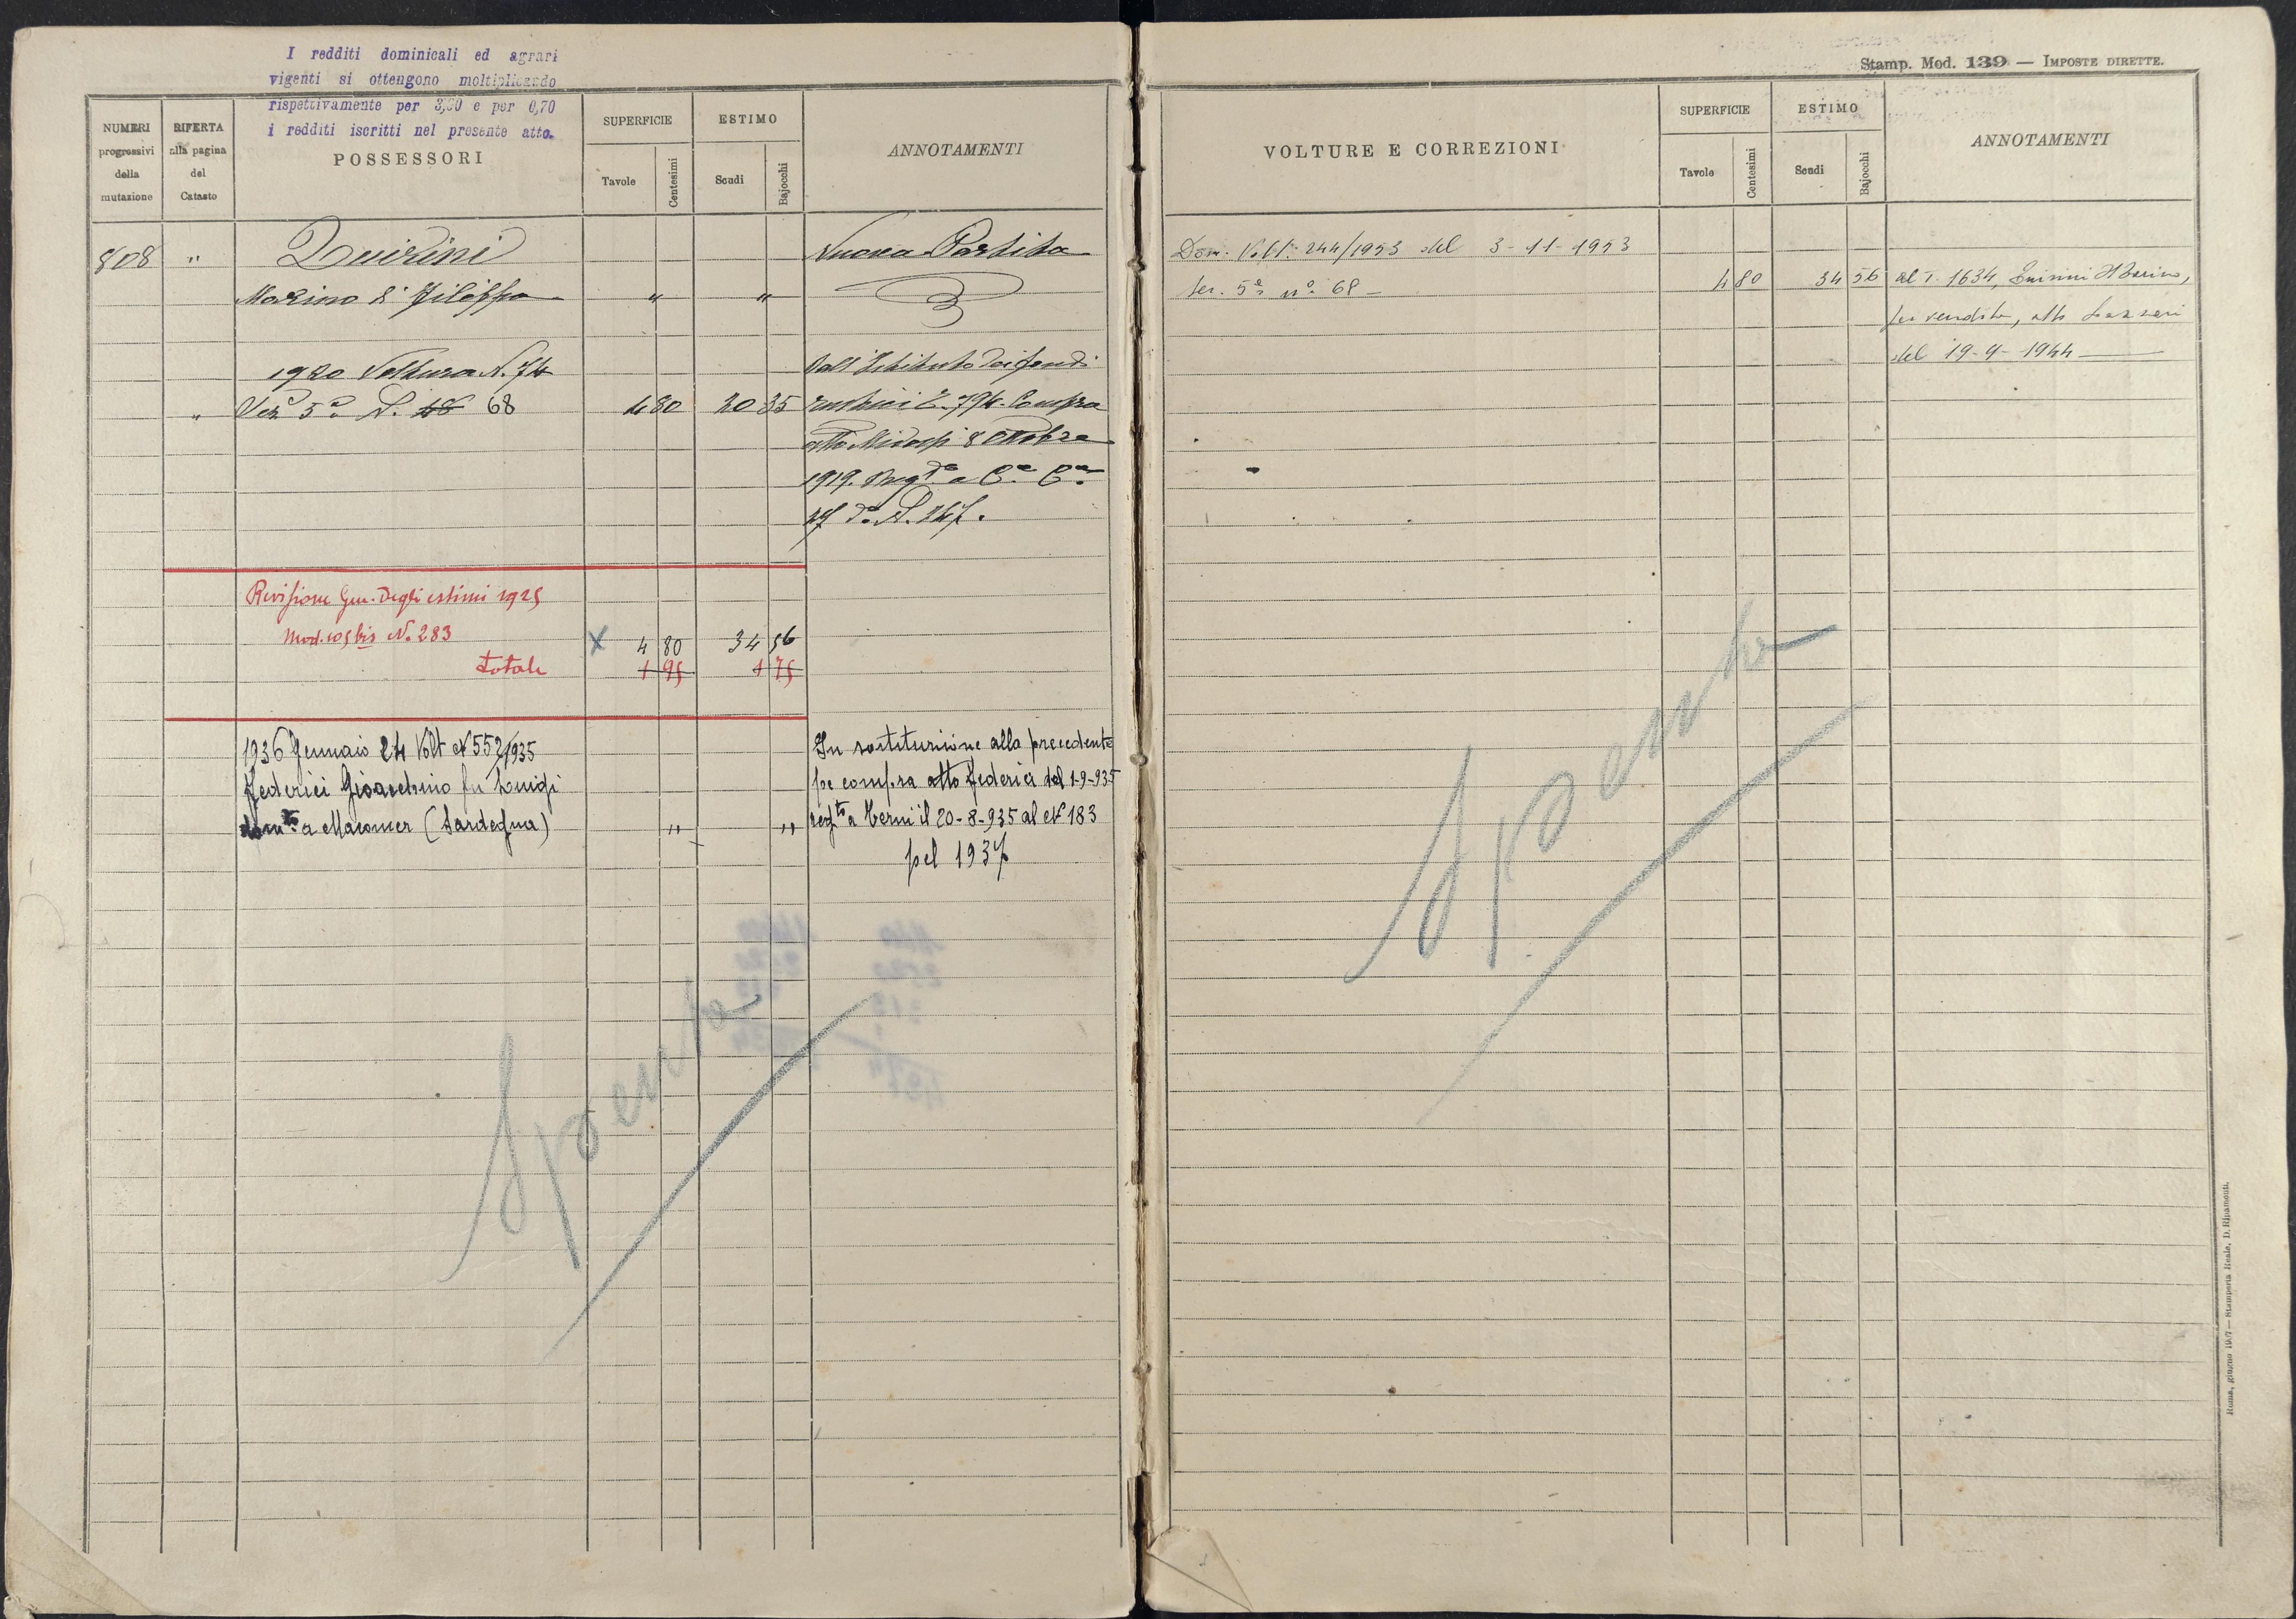 I redditi dominicali ed agrari
vigenti si ottengono moltiplicando
rispettivamente per 3,30 e per 0,70
i redditi iscritti nel presente atto.
NUMERI progressivi della mutazione
RIFERTA alla pagina del Catasto
POSSESSORI
SUPERFICIE
Tavole
Centesimi
ESTIMO
Scudi
Bajocchi
ANNOTAMENTI
808 " Quirini Nuova Partita
Marino di Filippo " "
1920 Voltura N. 74 Dall'Istituto dei fondi
" Sez. 5a N. 48 68 4 80 20 35 rustici 794. Compra
atto 8 Ottobre
1919. Regto a
N. 247.
Revisione Gen. degli estimi 1925
Mod. 105 bis N. 283 X 4 80 34 56
Totale 1 95 1 75
1936 Gennaio 24 Volt N 552/1935 In sostituzione alla precedente
Federici Gioacchino fu Luigi pe compra atto Federici del 1-9-935
domto a Macomer (Sardegna) " " regto a Terni il 20-8-935 al N 183
pel 1937
Spenta
Stamp. Mod. 139 — IMPOSTE DIRETTE.
VOLTURE E CORREZIONI
SUPERFICIE
Tavole
Centesimi
ESTIMO
Scudi
Bajocchi
ANNOTAMENTI
Dom. Volt. 244/1953 del 3-11-1953
Sez. 5a n° 68 — 4 80 34 56 al T. 1634, Quirini Marino,
per vendita, atto Lazzari
del 19-4-1944
Spenta
Roma, giugno 1907 — Stamperia Reale, D. Ripamonti.